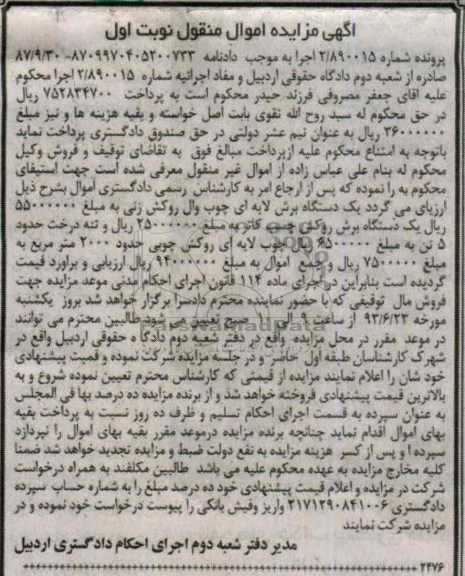 آگهی مزایده اموال منقول نوبت اول
پرونده شماره ۲/۸۹۰۰۱۵ اجرا به موجب دادنامه ۸۷۰۹۹۷۰۴۰۵۲۰۰۷۳۳-۸۷/۹/۳۰
صادره از شعبه دوم دادگاه حقوقی اردبیل و مفاد اجرائیه شماره ۲/۸۹۰۰۱۵ اجرا محکوم
علیه آقای جعفر مصروفی فرزند حیدر محکوم است به پرداخت ۷۵۲۸۳۴۷۰۰ ریال
در حق محکوم له سید روح الله تقوی بابت اصل خواسته و بقیه هزینه ها و نیز مبلغ
۳۶۰۰۰۰۰۰ ریال به عنوان نیم عشر دولتی در حق صندوق دادگستری پرداخت نماید
باتوجه به امتناع محکوم علیه ازپرداخت مبالغ فوق به تقاضای توقیف و فروش وکیل
محکوم له بنام علی عباس زاده از اموال غیر منقول معرفی شده است جهت استیفای
محکوم به را نموده که پس از ارجاع امر به کارشناس رسمی دادگستری اموال بشرح ذیل
ارزیای می گردد یک دستگاه برش لایه ای چوب وال روکش زنی به مبلغ ۵۵۰۰۰۰۰۰
ریال یک دستگاه برش روکش چسب کاتر به مبلغ ۲۵۰۰۰۰۰۰ ریال و تنه درخت حدود
۵ تن به مبلغ ۶۵۰۰۰۰۰ ریال چوب لایه ای روکش چوبی حدود ۲۰۰۰ متر مربع به
مبلغ ۷۵۰۰۰۰۰ ریال و جمع اموال به مبلغ ۹۴۰۰۰۰۰۰ ریال ارزیابی و براورد قیمت
گردیده است بنابراین در اجرای ماده ۱۱۴ قانون اجرای احکام مدنی موعد مزایده جهت
فروش مال توقیفی که با حضور نماینده محترم دادسرا برگزار خواهد شد بروز یکشنبه
مورخه ۹۳/۶/۲۳ از ساعت ۹ الی صبح تعیین می شود طالبین محترم می توانند
در موعد مقرر در محل مزایده واقع در دفتر شعبه دوم دادگاه حقوقی اردبیل واقع در
شهرک کارشناسان طبقه اول حاضر و در جلسه مزایده شرکت نموده و قمیت پیشنهادی
خود شان را اعلام نمایند مزایده از قیمتی که کارشناس محترم تعیین نموده شروع و به
بالاترین قیمت پیشنهادی فروخته خواهد شد و از برنده مزایده ده درصد بها فی المجلس
به عنوان سپرده به قسمت اجرای احکام تسلیم و ظرف ده روز نسبت به پرداخت بقیه
بهای اموال اقدام نماید چنانچه برنده مزایده درموعد مقرر بقیه بهای اموال را نپردازد
سپرده او پس از کسر هزینه مزایده به نفع دولت ضبط و مزایده تجدید خواهد شد ضمنا
کلیه مخارج مزایده به عهده محکوم علیه می باشد طالبین مکلفند به همراه درخواست
شرکت در مزایده و اعلام قیمت پیشنهادی خود ده درصد مبلغ را به شماره حساب سپرده
دادگستری ۲۱۷۱۲۹۰۸۴۱۰۰۶ واریز وفیش بانکی را پیوست درخواست خود نموده و در
مزایده شرکت نمایند
مدیر دفتر شعبه دوم اجرای احکام دادگستری اردبیل
۲۴۷۶